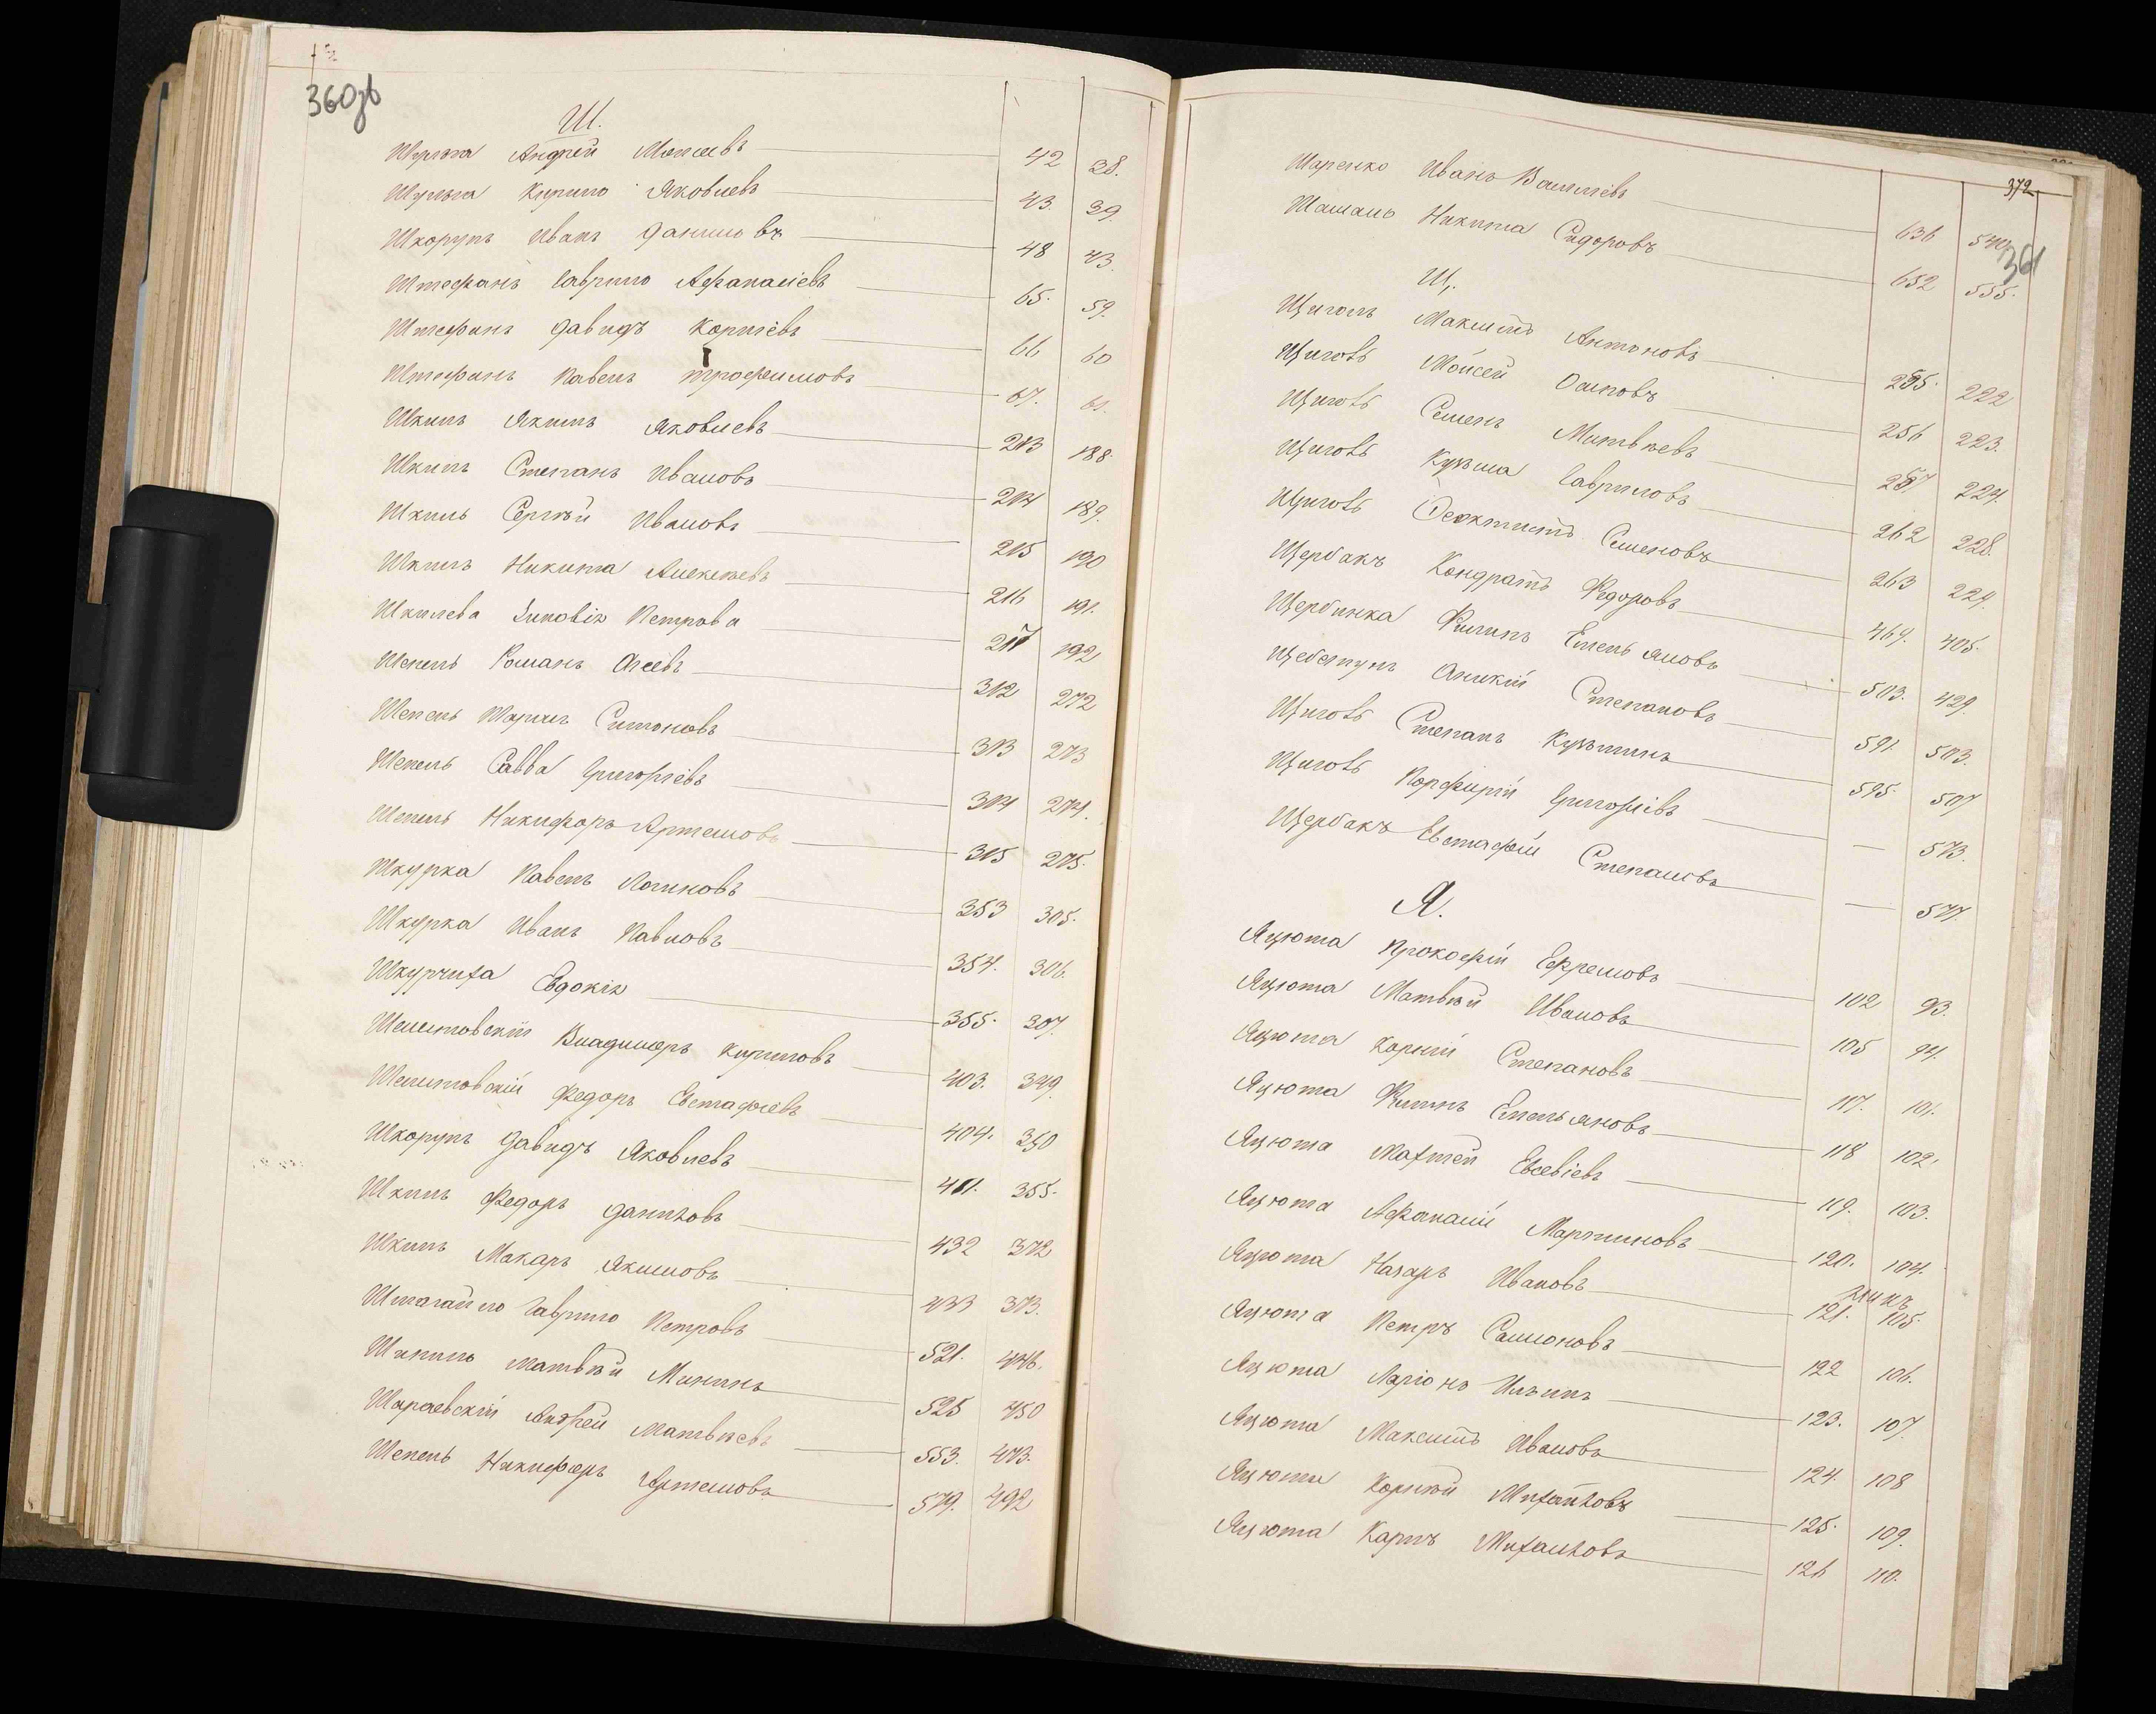 360зв
Ш.
Шульга Андрей Моисеевъ 42 38.
Шульга Кирило Яковлевъ 43. 39.
Шкорупъ Иванъ Даниловъ 48 43.
Штефанъ Гаврило Афанасіевъ 65. 59.
Штефанъ Давидъ Корніевъ 66 60
Штефанъ Павелъ Трофимовъ 67. 61.
Шкиль Якимъ Яковлевъ 213 188.
Шкиль Степанъ Ивановъ 214 189.
Шкиль Сергѣй Ивановъ 215 190
Шкиль Никита Алексѣевъ 216 191.
Шкилева Зиновія Петрова 217 192
Шепель Романъ Агеевъ 312 272
Шепель Маркъ Симоновъ 313 273
Шепель Савва Григоріевъ 314 274.
Шепель Никифоръ Артемовъ 315 275.
Шкурка Павелъ Логиновъ 353 305.
Шкурка Иванъ Павловъ 354. 306.
Шкурчиха Евдокія 355. 307.
Шелитовскій Владимеръ Кириловъ 403. 349.
Шелитовскій Федоръ Евстафіевъ 404. 350
Шкорупъ Давидъ Яковлевъ 411. 355.
Шкиль Федоръ Даниловъ 432 372
Шкиль Макаръ Якимовъ 433 373.
Шмагайло Гаврило Петровъ 521. 446.
Шикило Матвѣй Мининъ 525 450
Шараевскій Андрей Матвѣевъ 553. 473.
Шепель Никифоръ Артемовъ 579. 492
372
361
Шаренко Иванъ Василіевъ 636 540
Шашало Никита Сидоровъ 652 555.
Щ.
Щиголь Максимъ Антоновъ 255. 222
Щиголь Моисей Осиповъ 256 223.
Щиголь Семенъ Матвѣевъ 257 224.
Щиголь Кузьма Гавриловъ 262 228.
Щиголь Феоктистъ Семеновъ 263 229.
Щербакъ Кондратъ Федоровъ 469. 405.
Щербинка Филипъ Емельяновъ 503. 429.
Щебетунъ Аникій Степановъ 591. 503.
Щиголь Степанъ Кузьминъ 595. 507
Щиголь Порфирій Григоріевъ — 573.
Щербакъ Евстафій Степановъ — 577.
Я.
Яцюта Прокофій Ефремовъ 102 93.
Яцюта Матвѣй Ивановъ 105 94.
Яцюта Корній Степановъ 117. 101.
Яцюта Филипъ Емельяновъ 118 102.
Яцюта Махтей Евсевіевъ 119. 103.
Яцюта Афанасій Мартиновъ 120. 104.
Яцюта Назаръ Ивановъ 121. 105.
Яцюта Петръ Самсоновъ 122 106.
Яцюта Ларіонъ Ильинъ 123. 107.
Яцюта Максимъ Ивановъ 124. 108
Яцюта Корнѣй Михайловъ 125. 109.
Яцюта Карпъ Михайловъ 126 110.